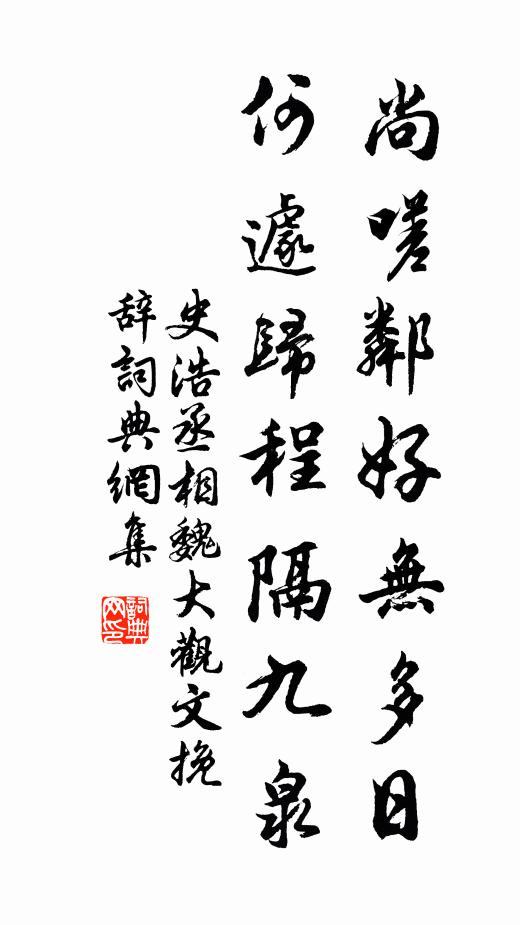 尚嗟鄰好無多日
何遽歸程隔九泉
史浩丞相魏大觀文挽
辞詞典網集
詞典网印